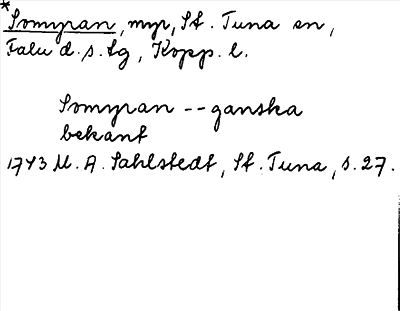 *Somyran, myr, St. Tuna sn,
Falu d.s. tg, Kopp. l.
Somyran -- ganska
bekant
1743 U. A. Sahlstedt, St. Tuna, s. 27.